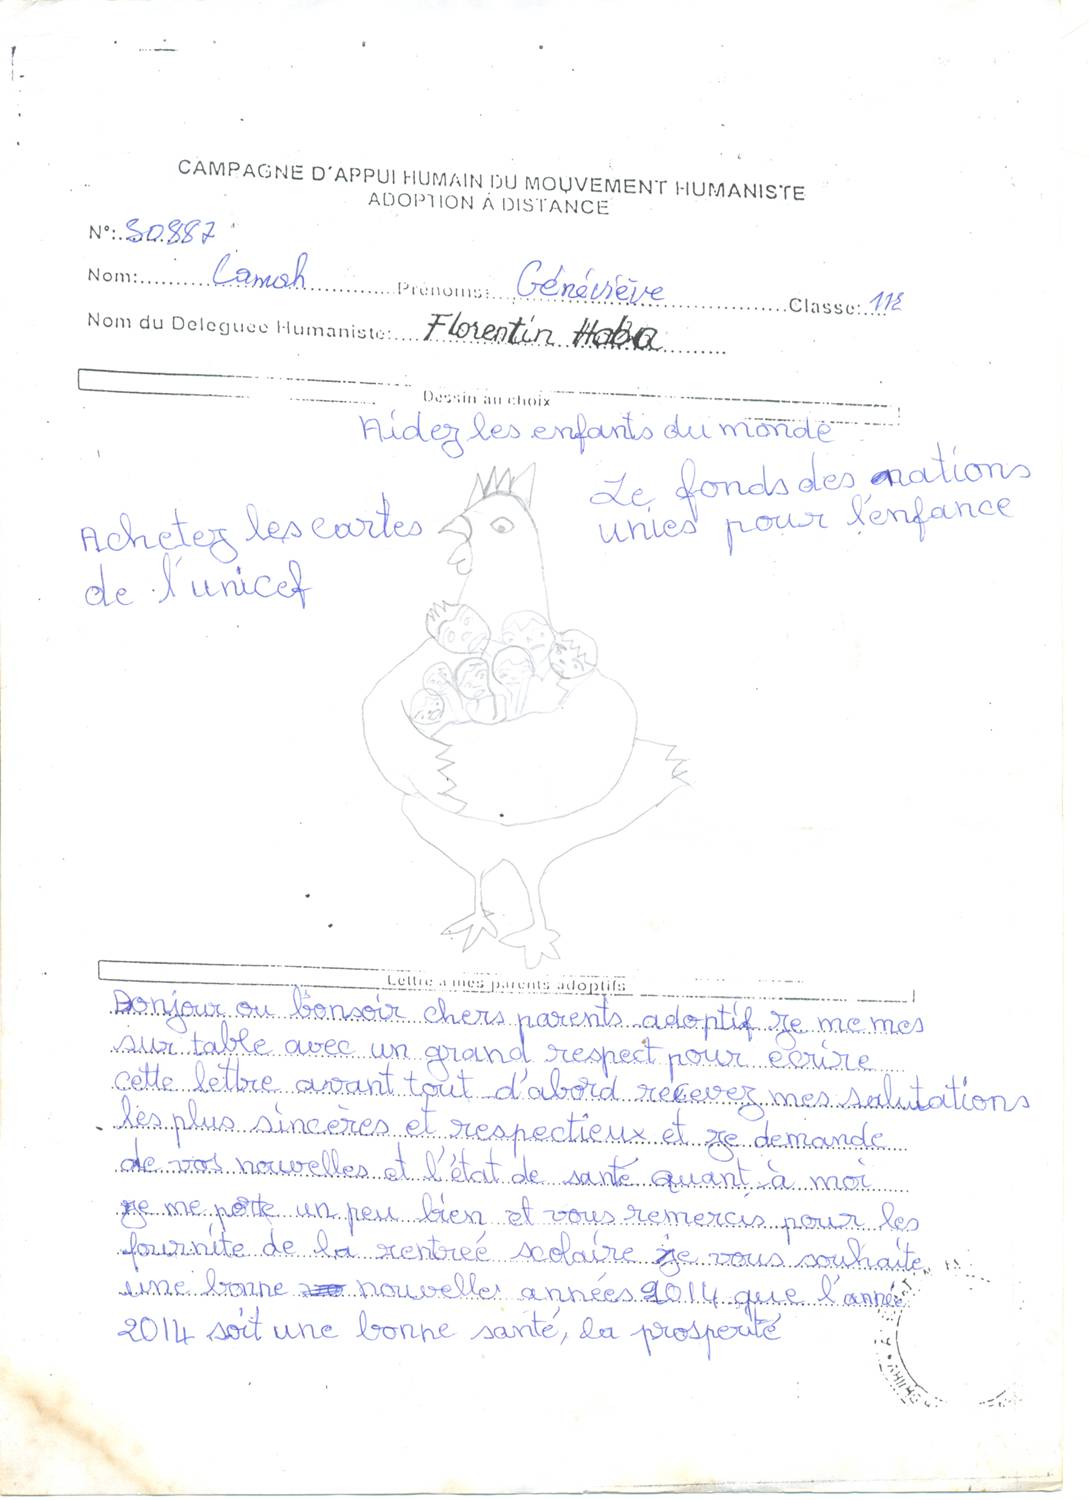 CAMPAGNE D'APPUI HUMAIN DU MOUVEMENT HUMANISTE
ADOPTION À DISTANCE
N°: 30.887
Nom: Camah Prénoms: Généviève Classe: 11E
Nom du Deleguee Humaniste: Florentin Haba
Dessin au choix
Aidez les enfants du monde
Le fonds des nations
unies pour l'enfance
Achetez les cartes
de l'unicef
Lettre a mes parents adoptifs
Bonjour ou bonsoir chers parents adoptif je me mes
sur table avec un grand respect pour ecrire
cette lettre avant tout d'abord recevez mes salutations
les plus sincères et respectieux et je demande
de vos nouvelles et l'état de santé quant à moi
je me porte un peu bien et vous remercis pour les
fournite de la rentreé scolaire je vous souhaite
une bonne nouvelle années 2014 que l'année
2014 soit une bonne santé, la prosperité